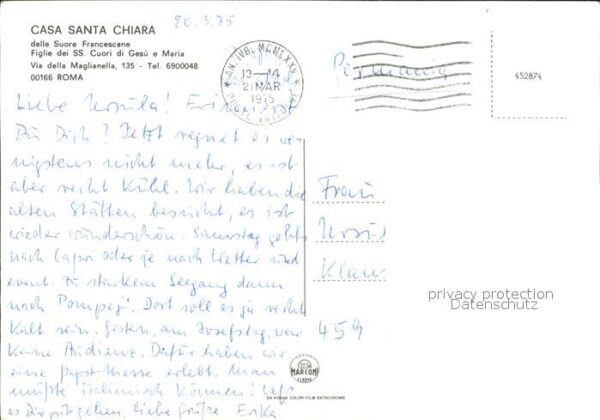 20.3.75
CASA SANTA CHIARA
delle Suore Francescane
Figlie dei SS. Cuori di Gesù e Maria
Via della Maglianella, 135 - Tel. 6900048
00166 ROMA
AN. IVB. MCMLXXV
13-14
21 MAR
1975
652874
Liebe Ursula!
Du Dich? Jetzt regnet es we-
nigstens nicht mehr, es ist
aber recht kühl. Wir haben die
alten Stätten besucht, es ist
wieder wunderschön. Samstag geht's
nach Capri oder je nach Wetter und
event. zu starkem Seegang dann
nach Pompeji. Dort soll es ja recht
kalt sein. Gestern, am Josefstag, war
keine Audienz. Dafür haben wir
eine Papstmesse erlebt. Man
müßte italienisch können! Laß
es Dir gut gehen, liebe Grüße Erika
Frau
Ursul
Klaus
459
privacy protection
Datenschutz
MARCONI
COLOR FILM EKTACHROME